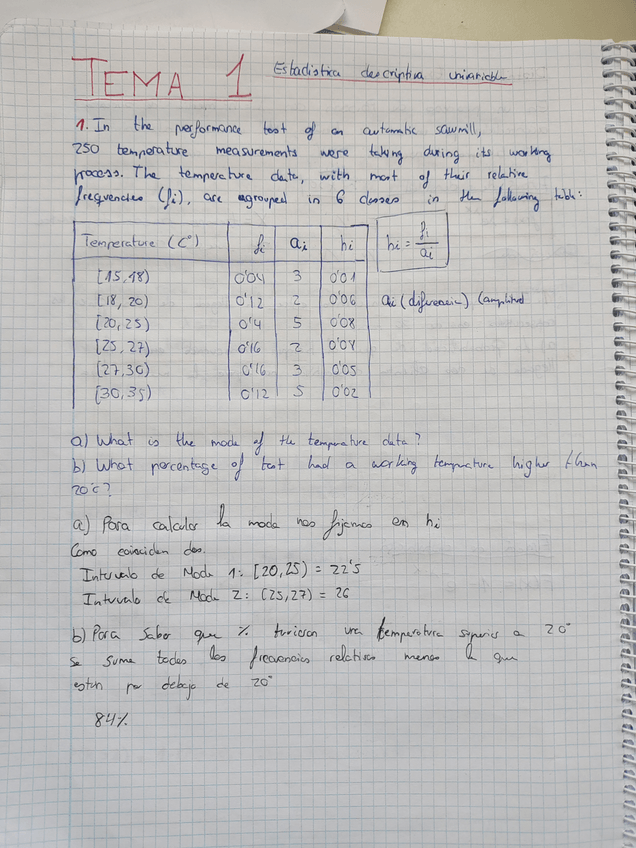 TEMA 1 Estadistica descriptiva univariable
1. In the performance test of an automatic sawmill,
250 temperature measurements were taking during its working
process. The temperature data, with most of their relative
frequencies (fi), are agrouped in 6 classes in the following table:
Temperature (Cº) fi ai hi hi = fi/ai
[15,18) 0'04 3 0'01
[18,20) 0'12 2 0'06 ai (diferencia) (amplitud)
[20,25) 0'4 5 0'08
[25,27) 0'16 2 0'08
[27,30) 0'16 3 0'05
[30,35) 0'12 5 0'02
a) What is the mode of the temperature data?
b) What percentage of test had a working temperature higher than
20ºc?
a) Para calcular la moda nos fijamos en hi
Como coinciden dos.
Intervalo de Moda 1: [20,25) = 22'5
Intervalo de Moda 2: (25,27) = 26
b) Para saber que % tuvieron una temperatura superior a 20º
se suma todas las frecuencias relativas menos la que
estan por debajo de 20º
84%